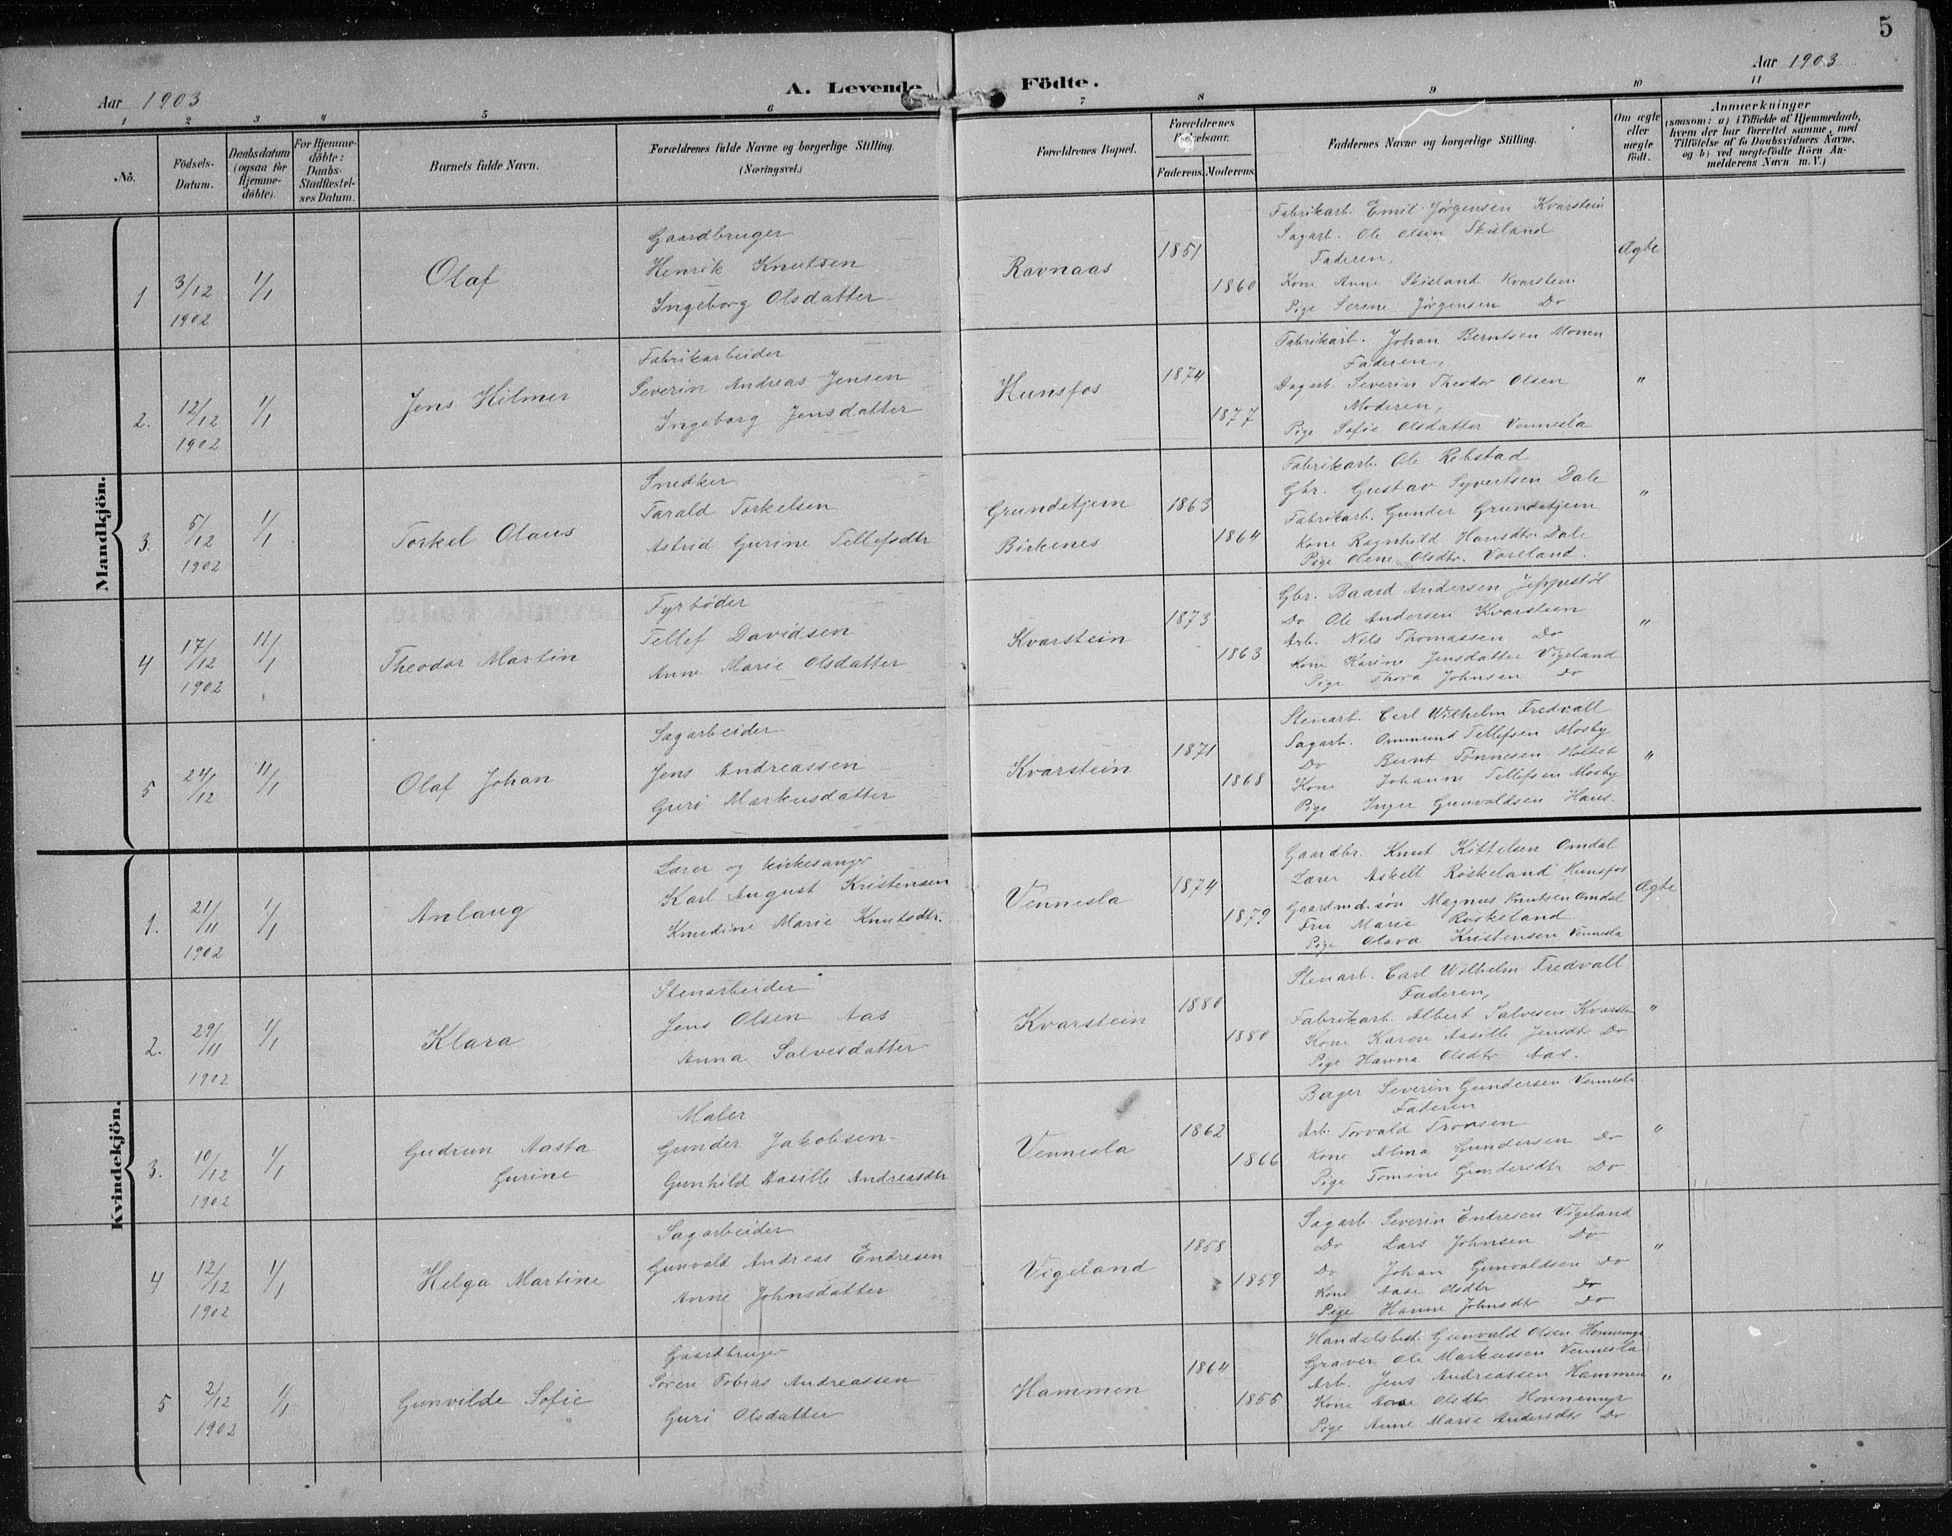 5
Aar 1903
A. Levende Födte.
Aar 1903
1 2 3 4 5 6 7 8 9 10 11
No.
Födsels-Datum.
Daabsdatum (ogsaa for Hjemmedöbte).
For Hjemmedöbte: Daabs-Stadfæstelses Datum.
Barnets fulde Navn.
Forældrenes fulde Navne og borgerlige Stilling.
(Næringsvei.)
Forældrenes Bopæl.
Forældrenes Födselsaar.
Faderens. Moderens.
Faddernes Navne og borgerlige Stilling.
Om ægte eller uægte födt.
Anmærkninger
(saasom: a) i Tilfælde af Hjemmedaab, hvem der har forrettet samme, med Tilföielse af to Daabsvidners Navne, og b) ved uegtefödte Börn Anmelderens Navn m. V.)
Mandkjön.
1
3/12
1902
1/1
Olaf
Gaardbruger
Henrik Knutsen
Ingeborg Olsdatter
Ravnaas
1851
1860
Fabrikarb. Emil Jørgensen Kvarstein
Sagarb. Ole Olsen Skisland
Faderen,
Kone Anne Skisland Kvarstein
Pige Serine Jørgensen Do
Ægte
2.
12/12
1902
1/1
Jens Hilmer
Fabrikarbeider
Severin Andreas Jensen
Ingeborg Jensdatter
Hunsfos
1874
1877
Fabrikarb. Johan Berntsen Monen
Faderen,
Dagarb. Severin Theodor Olsen
Moderen,
Pige Sofie Olsdatter Vennesla
"
3.
5/12
1902
1/1
Torkel Olaus
Snedker
Tarald Torkelsen
Astrid Gurine Tellefsdtr
Grundetjern
Birkenes
1863
1864
Fabrikarb. Ole Rebstad
Gbr. Gustav Syvertsen Dale
Fabrikarb. Gunder Grundetjern
Kone Ragnhild Hansdtr. Dale
Pige Olene Olsdtr. Voreland.
"
4
17/12
1902
11/1
Theodor Martin
Fyrbøder
Tellef Davidsen
Anne Marie Olsdatter
Kvarstein
1873
1863
Gbr. Baard Andersen Jeppestøl
Do Ole Andersen Kvarstein
Arb. Nils Thomassen Do
Kone Karine Jensdatter Vigeland
Pige Thora Johnsen Do
"
5
24/12
11/1
Olaf Johan
Sagarbeider
Jens Andreassen
Guri Markusdatter
Kvarstein
1871
1868
Stenarb. Carl Wilhelm Fredvall
Sagarb. Ommund Tellefsen Mosby
Do Bernt Tønnesen Holtet
Kone Johanne Tellefsen Mosby
Pige Inger Gunvaldsen Haus.
"
Kvindekjön.
1.
21/11
1902
1/1
Anlaug
Lærer og kirkesanger
Karl August Kristensen
Knudine Marie Knutsdtr.
Vennesla
1874
1879
Gaardbr. Knut Kittelsen Omdal
Lærer Askell Røskeland Hunsfos
Gaardmd. søn Magnus Knutsen Omdal
Fru Marie Røskeland
Pige Olava Kristensen Vennesla
Ægte
2.
29/11
1902
1/1
Klara
Stenarbeider
Jens Olsen Aas
Anna Salvesdatter
Kvarstein
1880
1880
Stenarb. Carl Wilhelm Fredvall
Faderen,
Fabrikarb. Albert Salvesen Kvarstein
Kone Karen Aasille Jensdtr Do
Pige Hanna Olsdtr Aas.
"
3.
10/12
1902
1/1
Gudrun Aasta
Gurine
Maler
Gunder Jakobsen
Gunhild Aasille Andreasdtr
Vennesla
1862
1866
Bager Severin Gundersen Vennesla
Faderen
Arb. Torvald Tronsen
Kone Alma Gundersen Do
Pige Tomine Gundersdtr Do
"
4
12/12
1902
1/1
Helga Martine
Sagarbeider
Gunvald Andreas Endresen
Anne Johnsdatter
Vigeland
1858
1859
Sagarb. Severin Endresen Vigeland
Do Lars Johnsen Do
Do Johan Gunvaldsen Do
Kone Aase Olsdtr Do
Pige Hanne Johnsdtr Do
"
5
2/12
1902
1/1
Gunvilde Sofie
Gaardbruger
Søren Tobias Andreassen
Guri Olsdatter
Hammen
1864
1855
Handelsbest. Gunvald Olsen Honnemyr
Graver Ole Markussen Vennesla
Arb. Jens Andreassen Hammen
Kone Aase Olsdtr Honnemyr
Pige Anne Marie Andersdtr Do
"